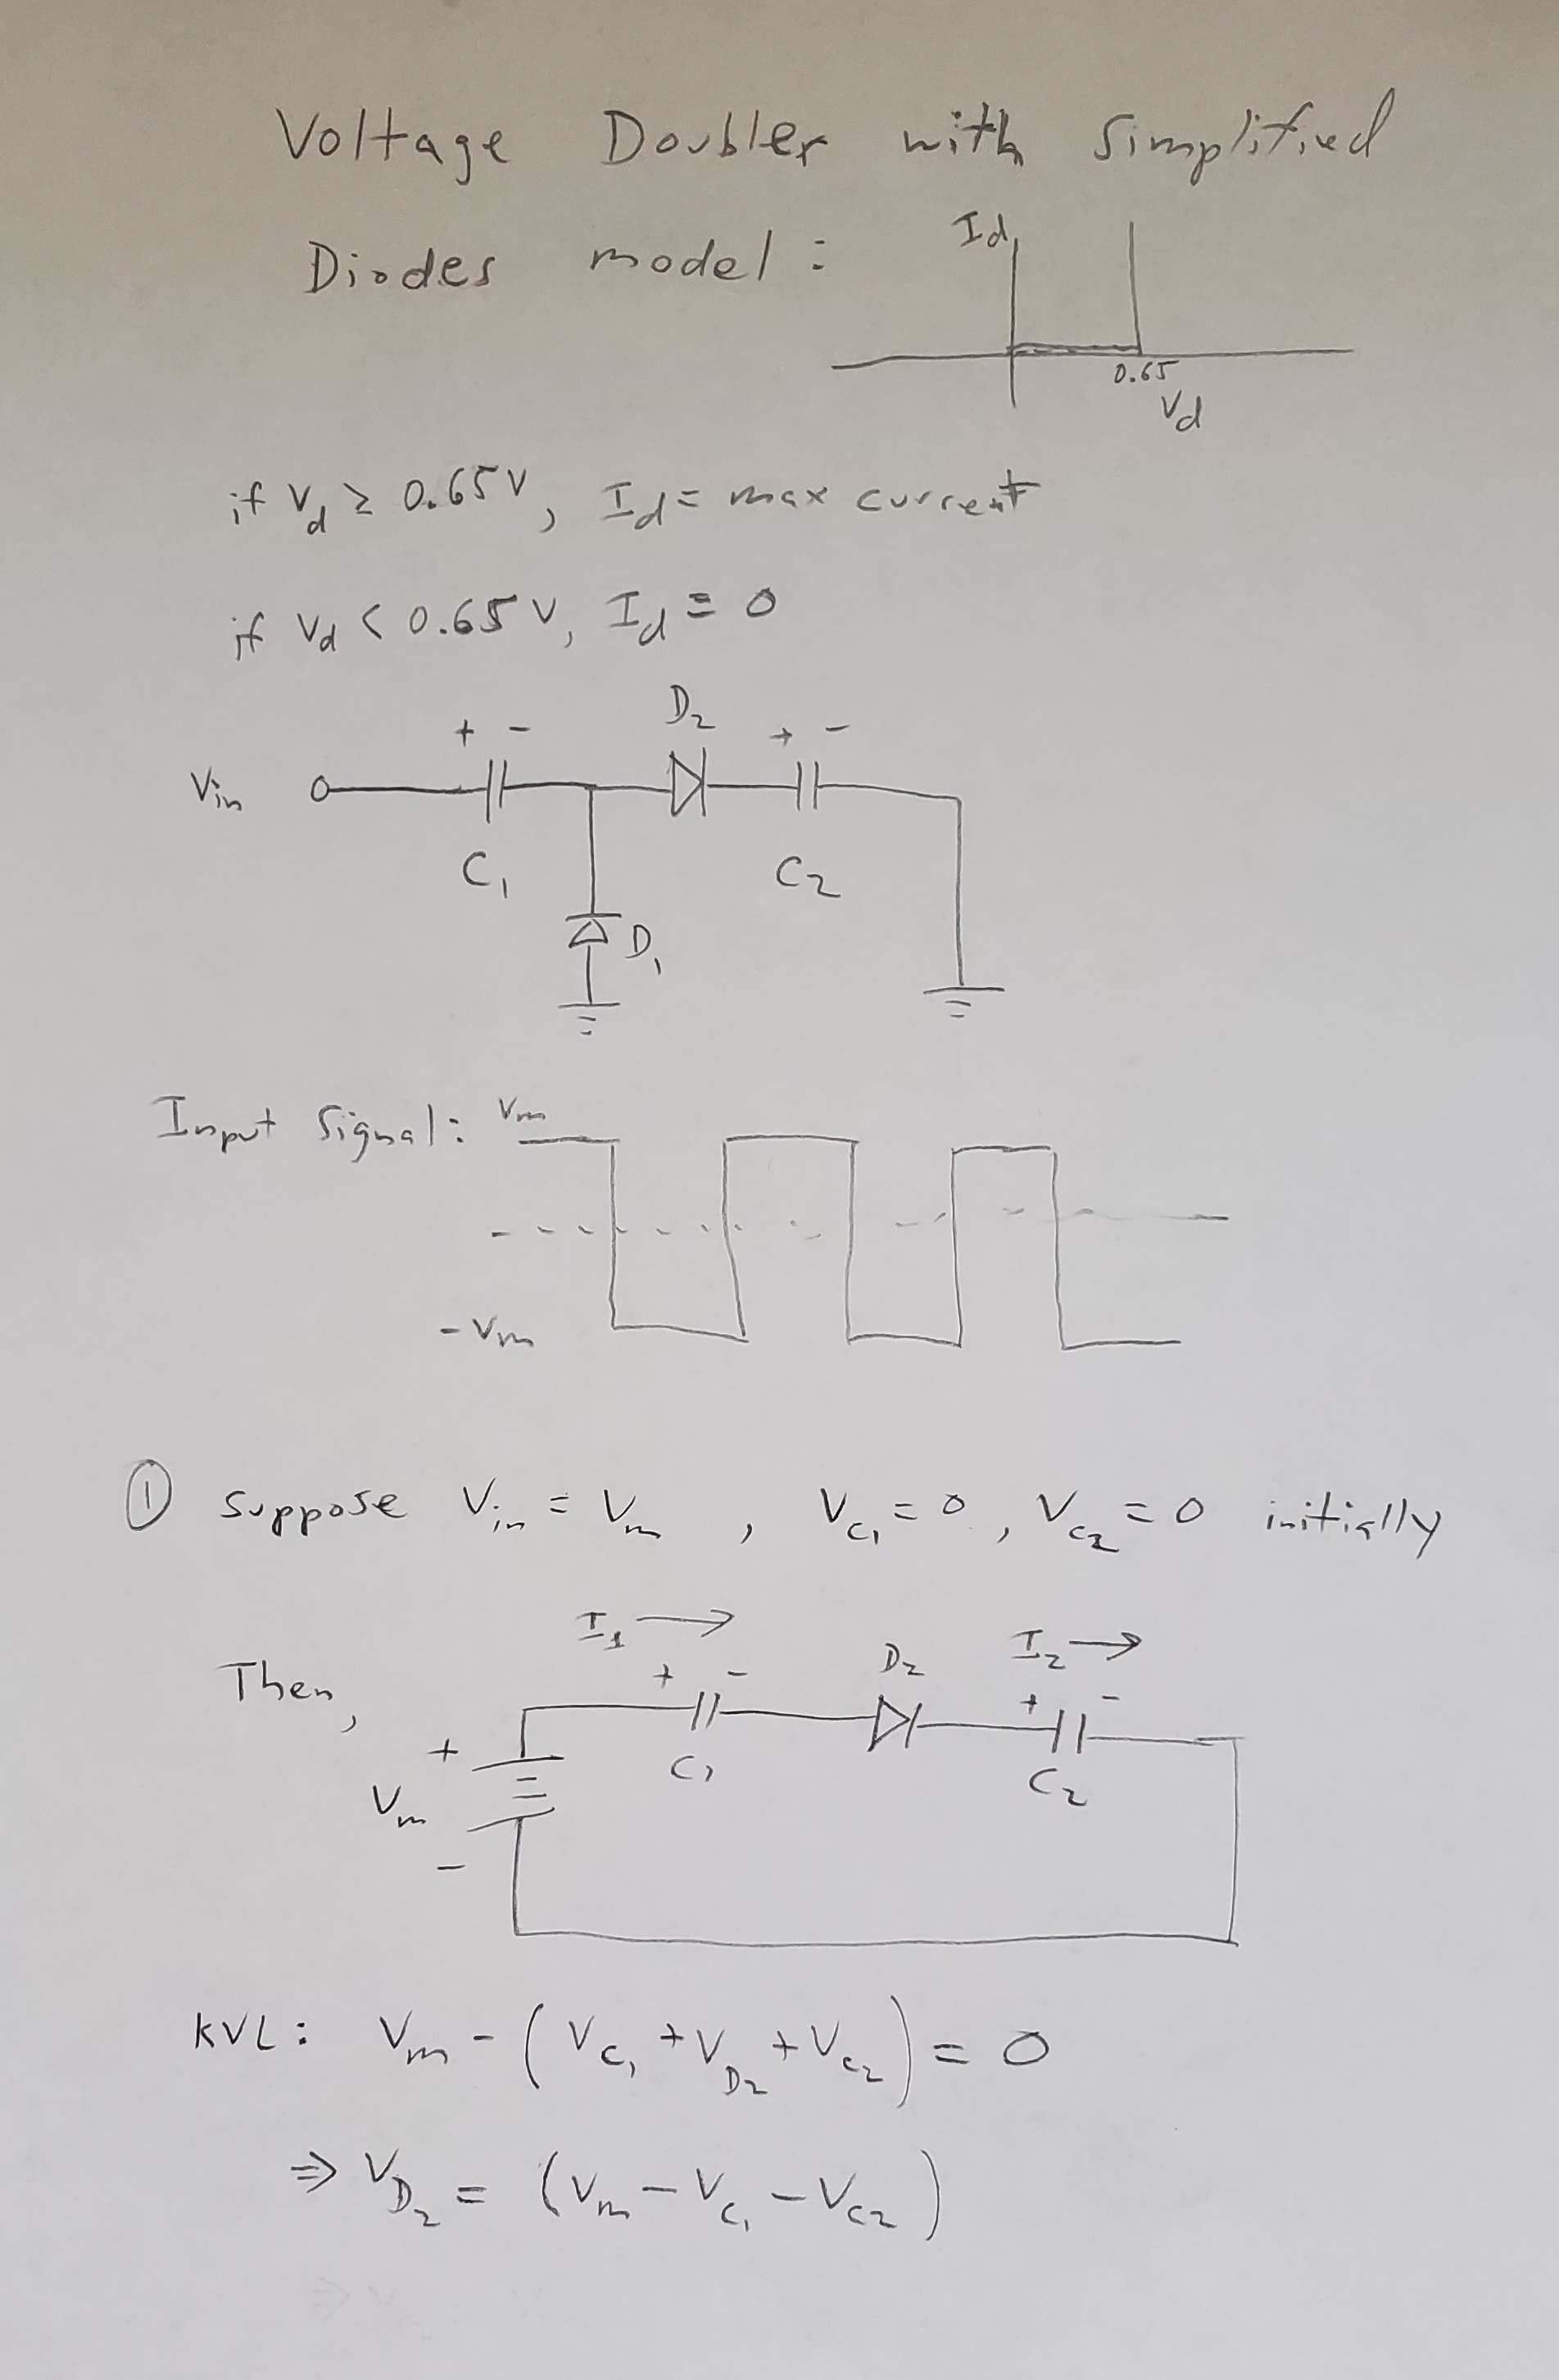 Voltage Doubler with Simplified
Diodes model:
Id
0.65
Vd
if Vd ≥ 0.65V, Id = max current
if Vd < 0.65V, Id = 0
D2
+ - + -
Vin
C1 C2
D1
Input Signal: Vm
-Vm
① suppose Vin = Vm, VC1 = 0, VC2 = 0 initially
I1 → I2 →
Then,
+ - D2 + -
C1 C2
+
Vm
-
KVL: Vm - (VC1 + VD2 + VC2) = 0
⇒ VD2 = (Vm - VC1 - VC2)